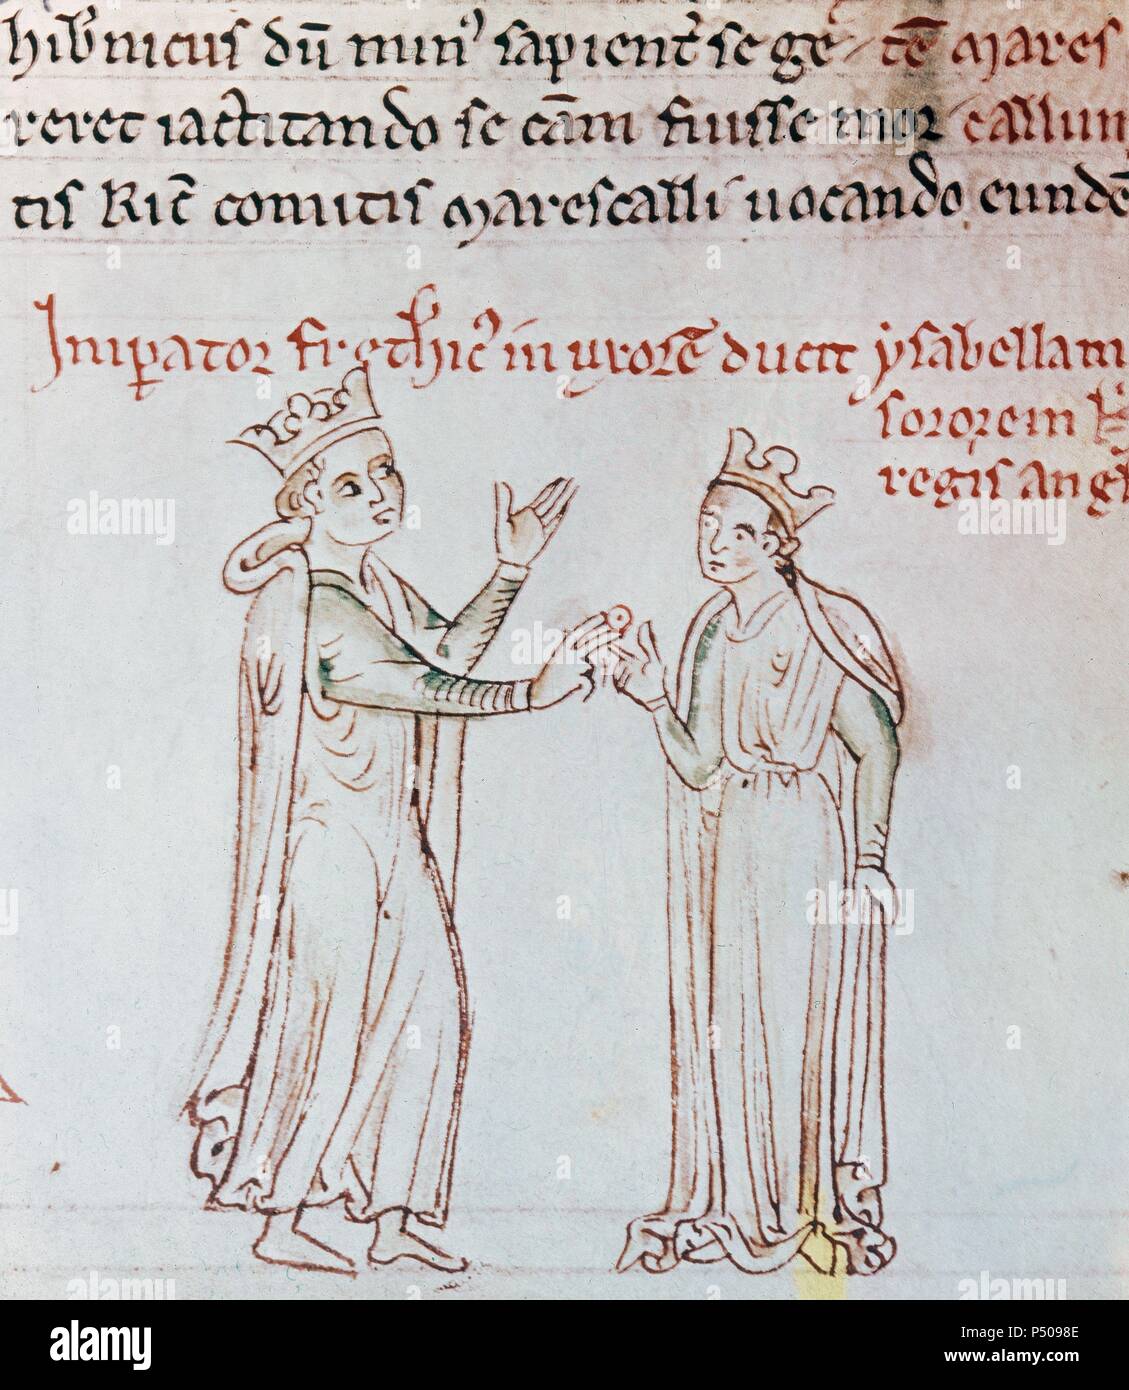 hib'nicus dũ min' sapient' se ge tẽ mares
reret iactitando se cãm fuisse mor callum
tis Ric̃ comitis marescalli uocando eundẽ
Imp̱ator frethic' in uxorẽ ducit ysabellam
sororem
regis angl
alamy
Image ID: P5098E
www.alamy.com